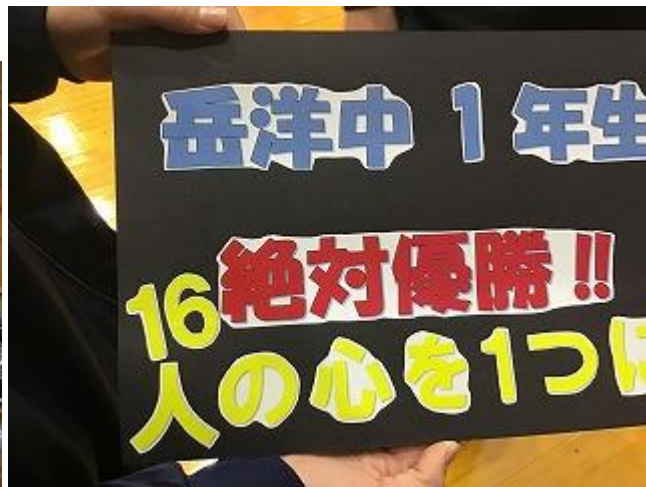 岳洋中 1年生
絶対優勝!!
16
人の心を1つに